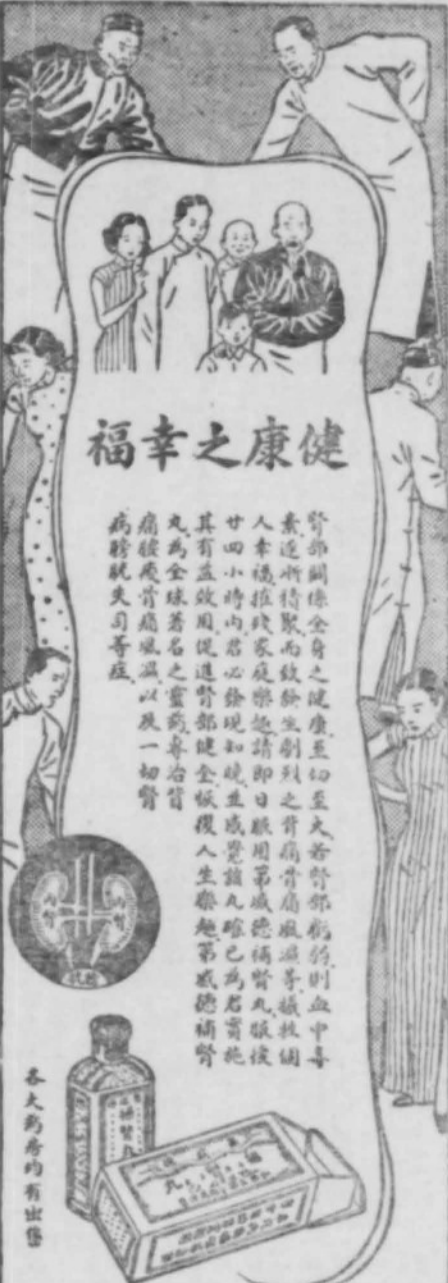 健康之幸福
腎部關係全身之健康至切至大若腎部虧弱則血中毒
素逐漸積聚而致發生劇烈之背痛骨痛風濕等犧牲個
人幸福摧殘家庭樂趣請即日服用第威德補腎丸服後
廿四小時內君必發現知曉並感覺該丸確已為君實施
其有益效用促進腎部健全恢復人生樂趣第威德補腎
丸為全球著名之靈藥專治背
痛腰痠骨痛風濕以及一切腎
病膀胱失司等症
內腎
內腎
補腎丸
各大藥房均有出售